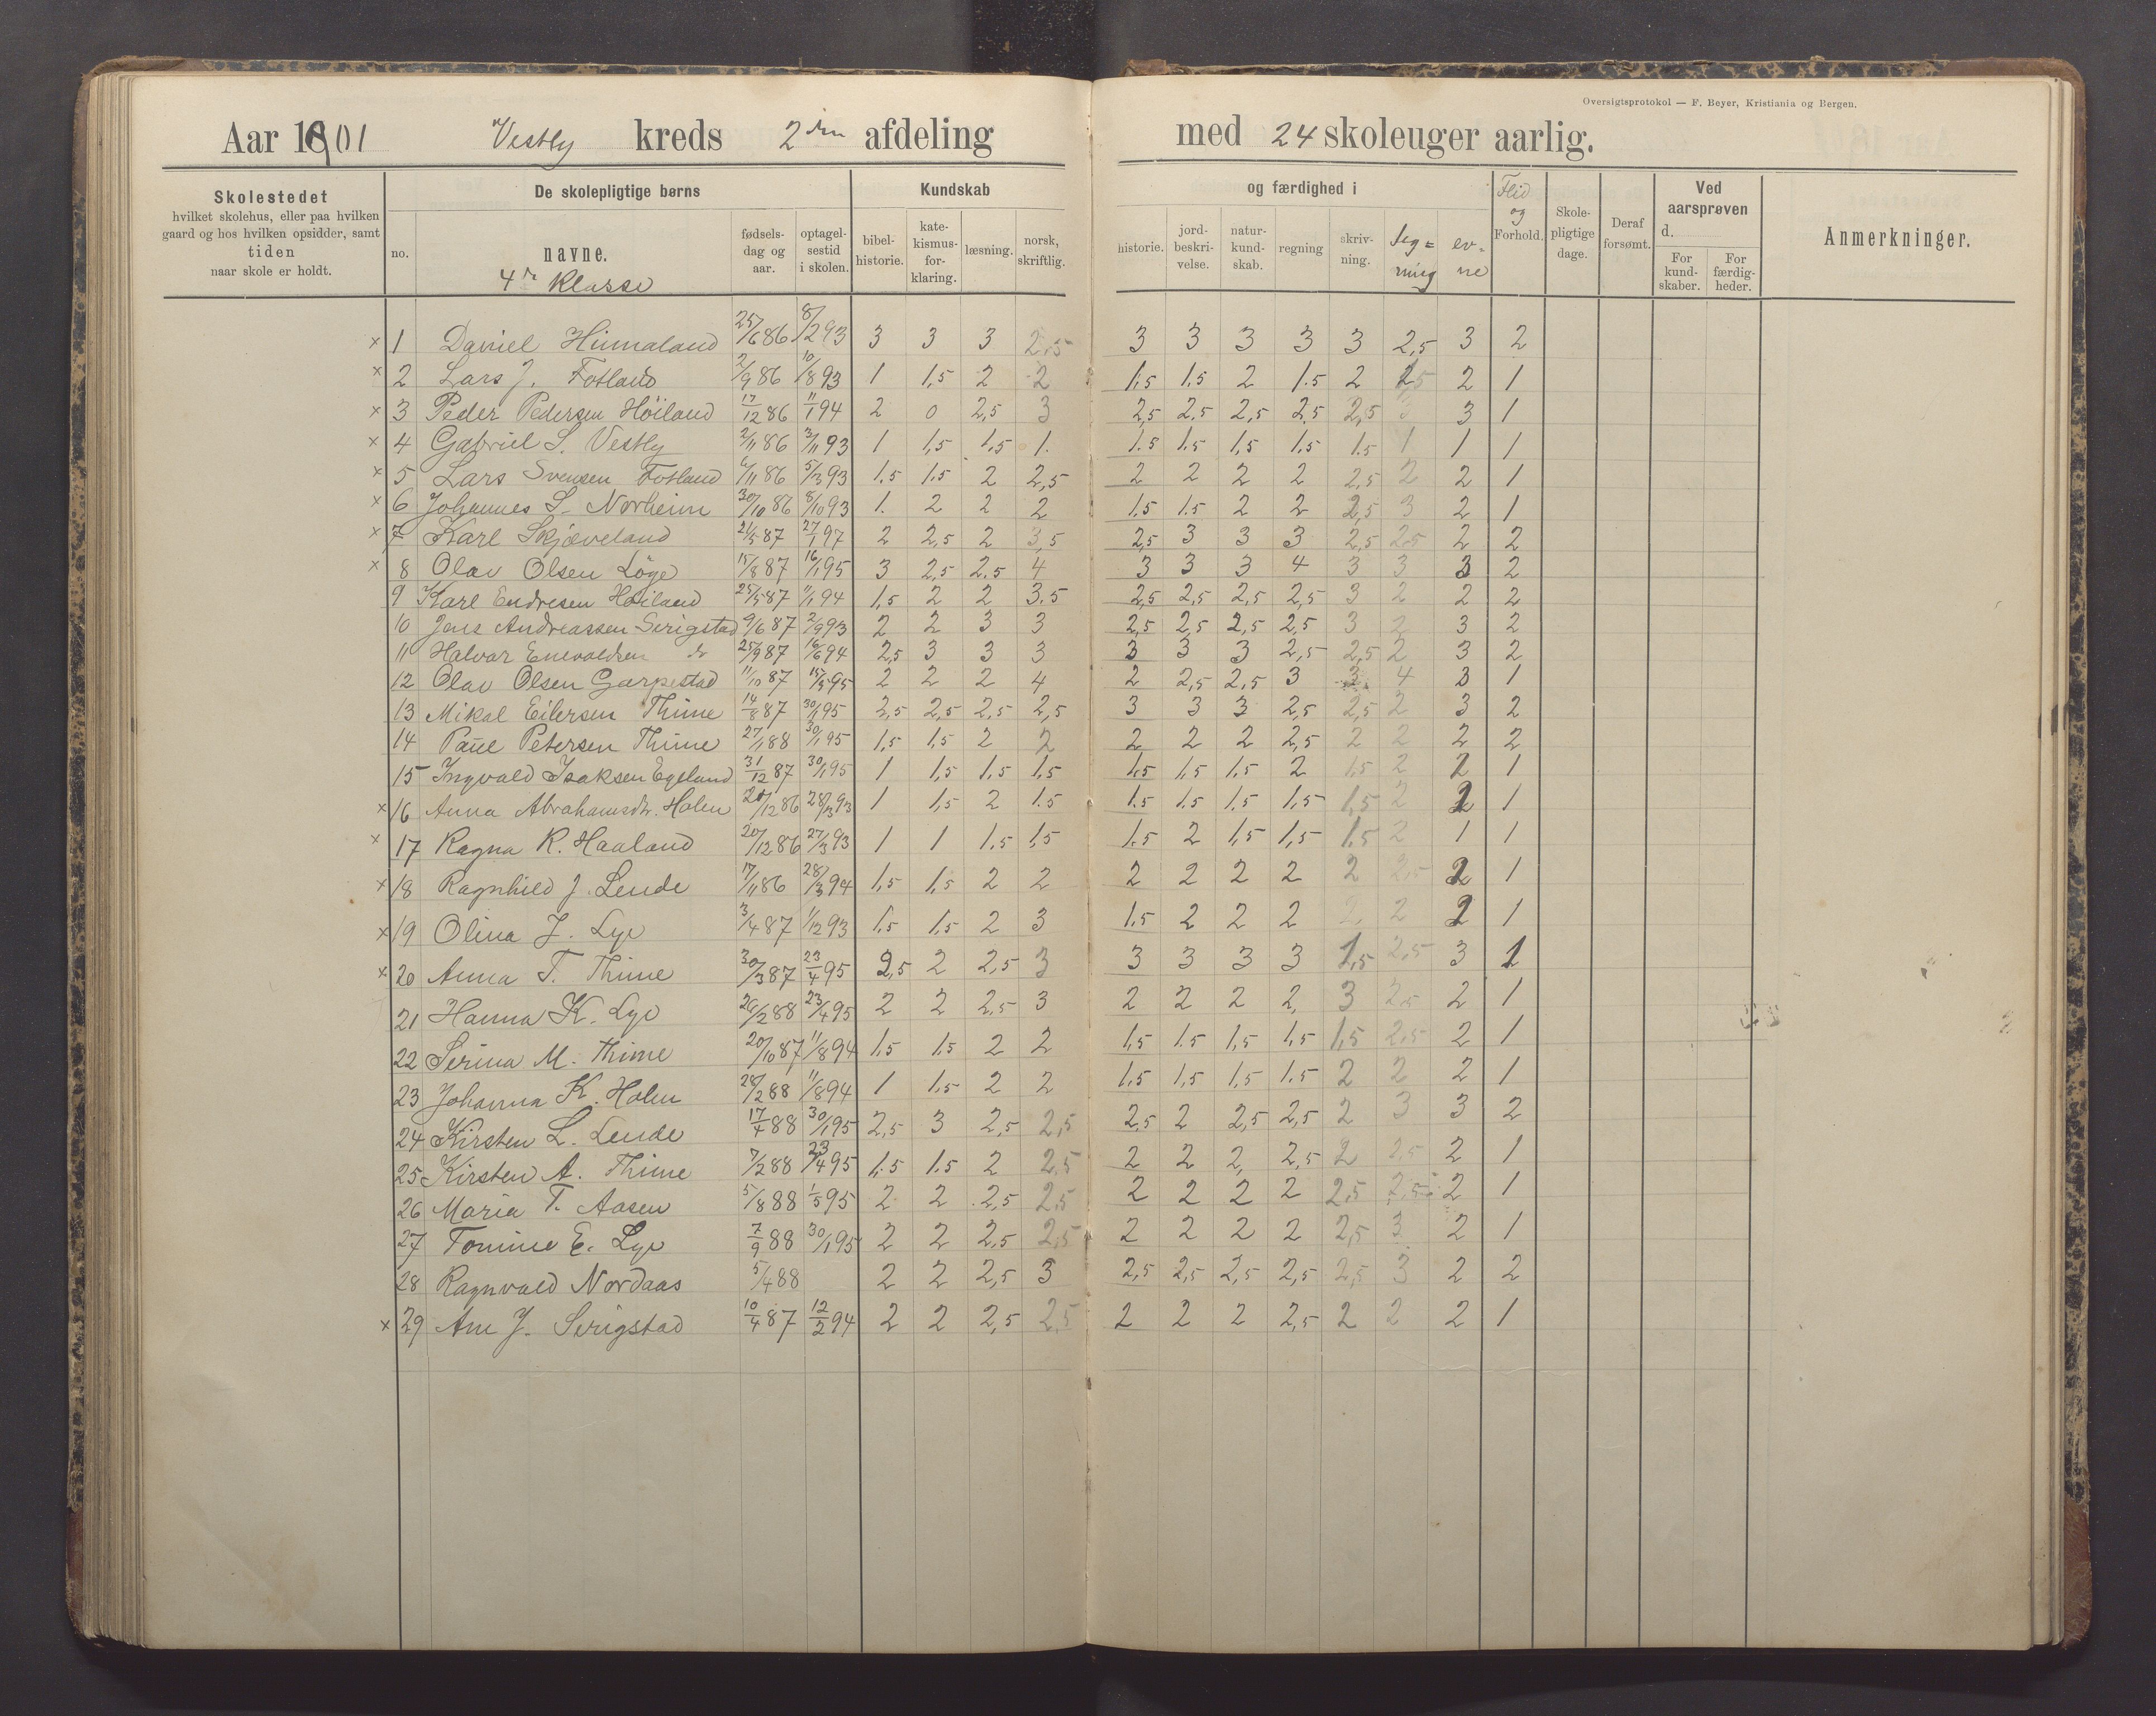 Oversigtsprotokol — F. Beyer, Kristiania og Bergen.
Aar 1901 Vestly kreds 2den afdeling med 24 skoleuger aarlig.
Skolestedet hvilket skolehus, eller paa hvilken gaard og hos hvilken opsidder, samt tiden naar skole er holdt.
De skolepligtige børns
no. navne. fødsels-dag og aar. optagel-sestid i skolen.
Kundskab og færdighed i
bibel-historie. kate-kismus-for-klaring. læsning. norsk, skriftlig. historie. jord-beskri-velse. natur-kund-skab. regning skriv-ning. Teg=ning ev-ne
Flid og Forhold. Skole-pligtige dage. Deraf forsømt. Ved aarsprøven d. For kund-skaber. For færdig-heder. Anmerkninger.
4de Klasse
x 1 Daniel Himaland 25/6 86 8/2 93 3 3 3 2,5 3 3 3 3 3 2,5 3 2
x 2 Lars J. Fotland 2/9 86 10/8 93 1 1,5 2 2 1,5 1,5 2 1.5 2 2 1
x 3 Peder Pedersen Höiland 17/12 86 11/1 94 2 0 2,5 3 2,5 2,5 2,5 2,5 2,5 3 3 1
x 4 Gabriel S. Vestly 2/11 86 3/11 93 1 1,5 1,5 1. 1.5 1.5 1,5 1,5 1.5 1 1 1
x 5 Lars Svensen Fotland 6/11 86 5/3 93 1.5 1.5 2 2,5 2 2 2 2 2,5 2 2 1
x 6 Johannes S. Norheim 30/10 86 8/10 93 1. 2 2 2 1.5 1.5 2 2 2,5 3 2 1
x 7 Karl Skjæveland 21/5 87 27/1 97 2 2,5 2 3,5 2,5 3 3 3 2,5 2,5 2 2
x 8 Olav Olsen Löge 15/8 87 16/1 95 3 2,5 2.5 4 3 3 3 4 3 3 3 2
9 Karl Endresen Höiland 25/5 87 11/1 94 1,5 2 2 3.5 2,5 2,5 2,5 2,5 3 2 2 2
10 Jens Andreassen Serigstad 9/6 87 2/9 93 2 2 3 3 2,5 2,5 2,5 2,5 3 2 3 2
11 Halvar Enevoldsen do 25/9 87 16/6 94 2,5 3 3 3 3 3 3 2,5 2,5 2 3 2
12 Olav Olsen Garpestad 11/10 87 15/3 95 2 2 2 4 2 2,5 2,5 3 3 4 3 1
13 Mikal Eilersen Thime 14/8 87 30/1 95 2,5 2,5 2,5 2,5 3 3 3 2,5 2,5 2 3 2
14 Paul Petersen Thime 27/1 88 30/1 95 1,5 1,5 2 2 2 2 2 2,5 2 2 2 2
15 Ingvald Isaksen Egeland 31/12 87 30/1 95 1 1,5 1,5 1,5 1,5 1,5 1,5 2 1,5 2 2 1
x 16 Anna Abrahamsdtr. Holen 12 86 28/3 93 1 1,5 2 1.5 1.5 1.5 1,5 1,5 1,5 2 2 1
x 17 Ragna R. Haaland 20/12 86 27/3 93 1 1 1,5 1,5 1.5 2 1,5 1,5 1,5 2 1 1
x 18 Ragnhild J. Lende 17/11 86 28/3 94 1,5 1,5 2 2 2 2 2 2 2 2,5 2 1
x 19 Olina J. Lye 3/4 87 1/12 93 1,5 1,5 2 3 1.5 2 2 2 2 2 2 1
x 20 Anna T. Thime 30/3 87 23/4 95 2,5 2 2,5 3 3 3 3 3 1,5 2,5 3 1
21 Hanna K. Lye 26/2 88 23/4 95 2 2 2,5 3 2 2 2 2, 3 2,5 2 1
22 Serina M. Thime 20/10 87 11/8 94 1,5 1,5 2 2 1,5 1.5 1,5 1,5 1,5 2,5 2 1
23 Johanna K. Holen 28/2 88 11/8 94 1 1,5 2 2 1.5 1,5 1,5 1.5 2 2 2 1
24 Kirsten L. Lende 17/4 88 30/1 95 2,5 3 2,5 2,5 2,5 2 2,5 2,5 2 3 3 2
25 Kirsten A. Thime 7/2 88 23/4 95 1.5 1.5 2 2,5 2 2 2, 2,5 2 2,5 2 1
26 Maria T. Aasen 5/8 88 1/5 95 2 2 2,5 2,5 2 2 2 2 2,5 2,5 2 1
27 Tomine E. Lye 7/9 88 30/1 95 2 2 2,5 2,5 2 2 2 2 2,5 3 2 1
28 Ragnvald Nordaas 5/4 88 2 2 2,5 3 2,5 2,5 2,5 2,5 2,5 3 2 2
x 29 Ane J. Serigstad 10/4 87 12/2 94 2 2 2,5 2,5 2 2 2 2,5 2 2 2 1